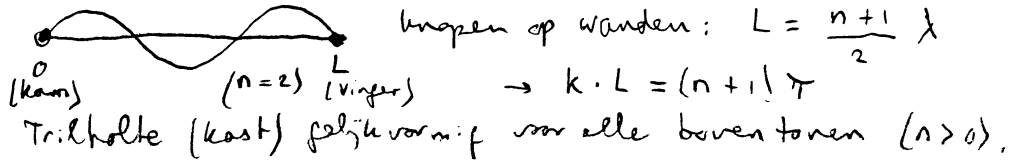 knopen op wanden: L = (n+1)/2 λ
0 L
(kam) (n=2) (vinger) → k·L = (n+1)π
Trilholte (kast) gelijkvormig voor alle boventonen (n>0).